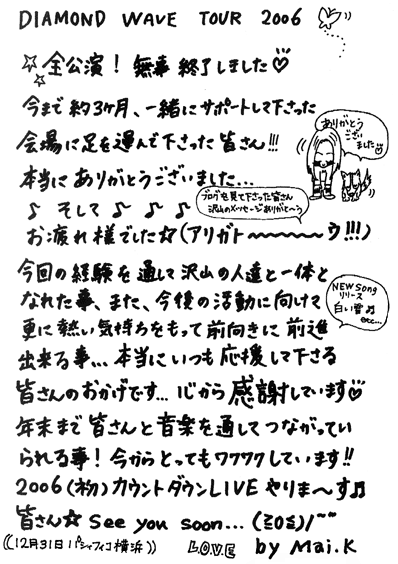 DIAMOND WAVE TOUR 2006
☆全公演！無事終了しました♡
今まで約3ヶ月、一緒にサポートして下さった
会場に足を運んで下さった皆さん!!!
ありがとう
ございました
本当にありがとうございました...
♪ そして ♪ ♪ ♪
ブログを見て下さった皆さん
沢山のメッセージありがと〜う
お疲れ様でした☆(アリガト〜〜〜〜ウ!!!)
今回の経験を通して沢山の人達と一体と
なれた事、また、今後の活動に向けて
NEW Song
リリース
白い雪♬
etc...
更に熱い気持ちをもって前向きに前進
出来る事... 本当にいつも応援して下さる
皆さんのおかげです... 心から感謝しています♡
年末まで皆さんと音楽を通してつながってい
られる事！今からとってもワクワクしています!!
2006(初)カウントダウンLIVEやりま〜す♬
皆さん☆ See you soon... (≧0≦)/~~
((12月31日パシフィコ横浜)) L.O.V.E by Mai.K